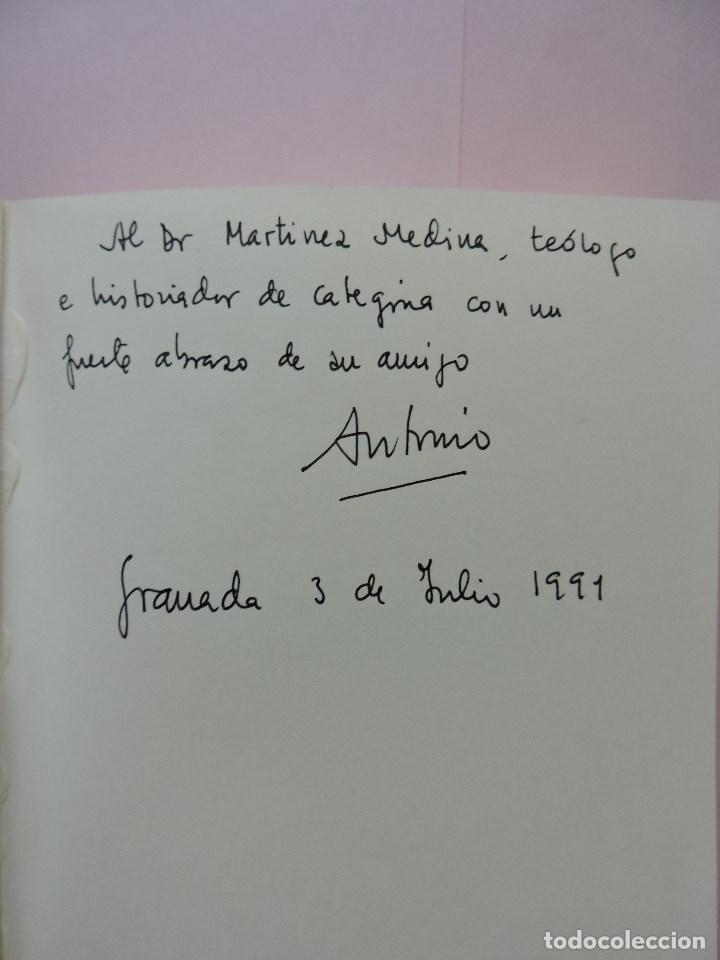 Al Dr Martinez Medina, teólogo
e historiador de categoria con un
fuerte abrazo de su amigo
Antonio
Granada 3 de Julio 1991
todocoleccion